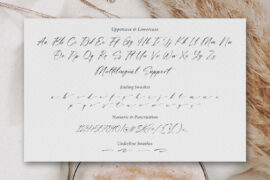 Uppercase & Lowercase
Aa Bb Cc Dd Ee Ff Gg Hh Ii Jj Kk Ll Mm Nn
Oo Pp Qq Rr Ss Tt Uu Vv Ww Xx Yy Zz
Multilingual Support
Ending Swashes
a b c d e f g h i j k l m n o
p q r s t u v w x y z
Numeric & Punctuation
Underline Swashes